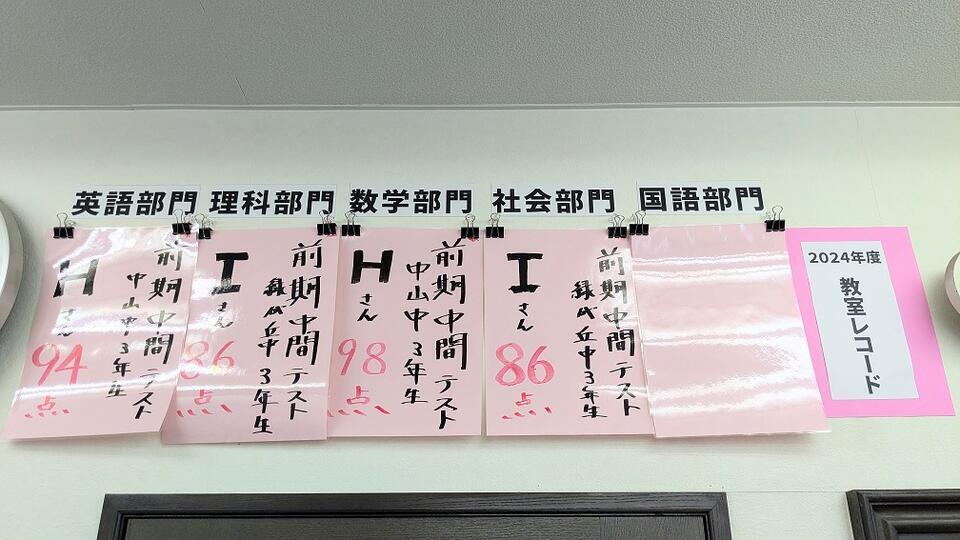 英語部門
理科部門
数学部門
社会部門
国語部門
2024年度
教室レコード
前期中間テスト
中山中3年生
Hさん
94点
前期中間テスト
緑が丘中3年生
Iさん
86点
前期中間テスト
中山中3年生
Hさん
98点
前期中間テスト
中3年生
Iさん
86点